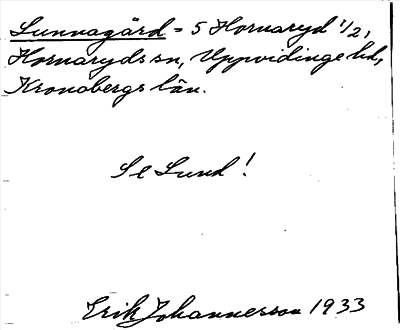 Lunnagård = 5 Hornaryd 1/2,
Hornaryds sn, Uppvidinge hd,
Kronobergs län.
Se Lund!
Erik Johannesson 1933